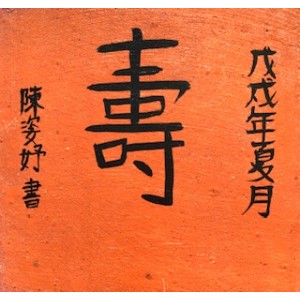 戊戌年夏月
壽
陳姿妤書